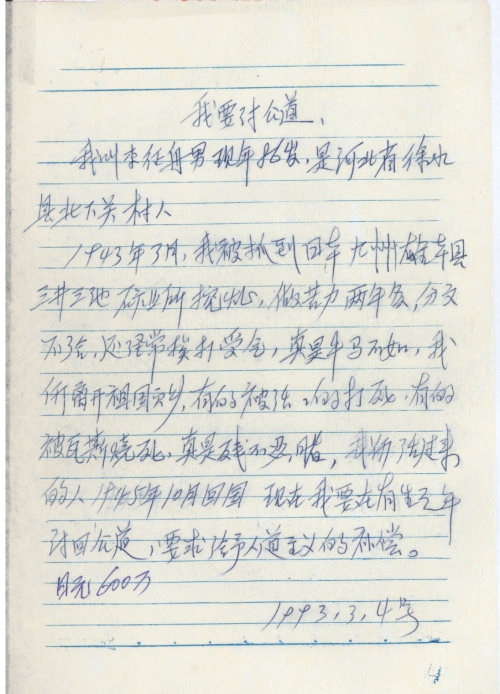 我要讨公道、
我叫李任身男现年86岁,是河北省徐水
县北下关村人
1943年3月,我被抓到日本九州雄本县
三井三池矿业所挖煤,做苦力两年多,分文
不给,还经常挨打受气,真是牛马不如,我
们离开祖国,有的被活活的打死,有的
被瓦斯烧死,真是残不忍睹,我们活过来
的人1945年10月回国 现在我要在有生之年
讨回公道,要求给予人道主义的补偿。
日元600万
1993.3.4号